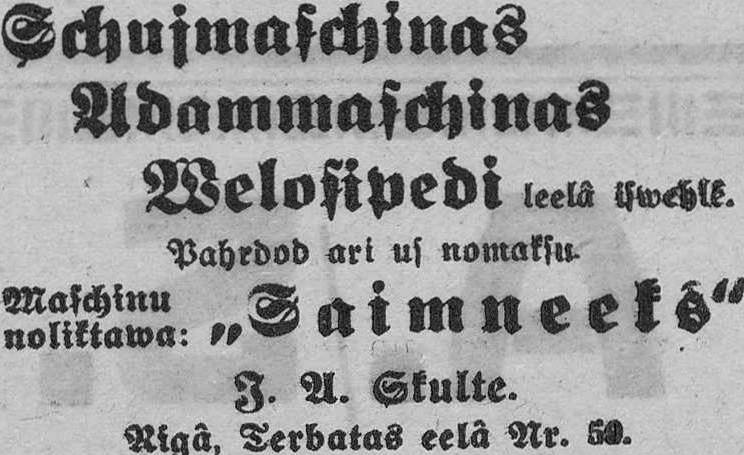 Schujmaschinas
Adammaschinas
Welosipedi leelâ iswehlê.
Pahrdod ari us nomaksu.
Maschinu
noliktawa: „Saimneeks“
J. A. Skulte.
Rigâ, Terbatas eelâ Nr. 50.